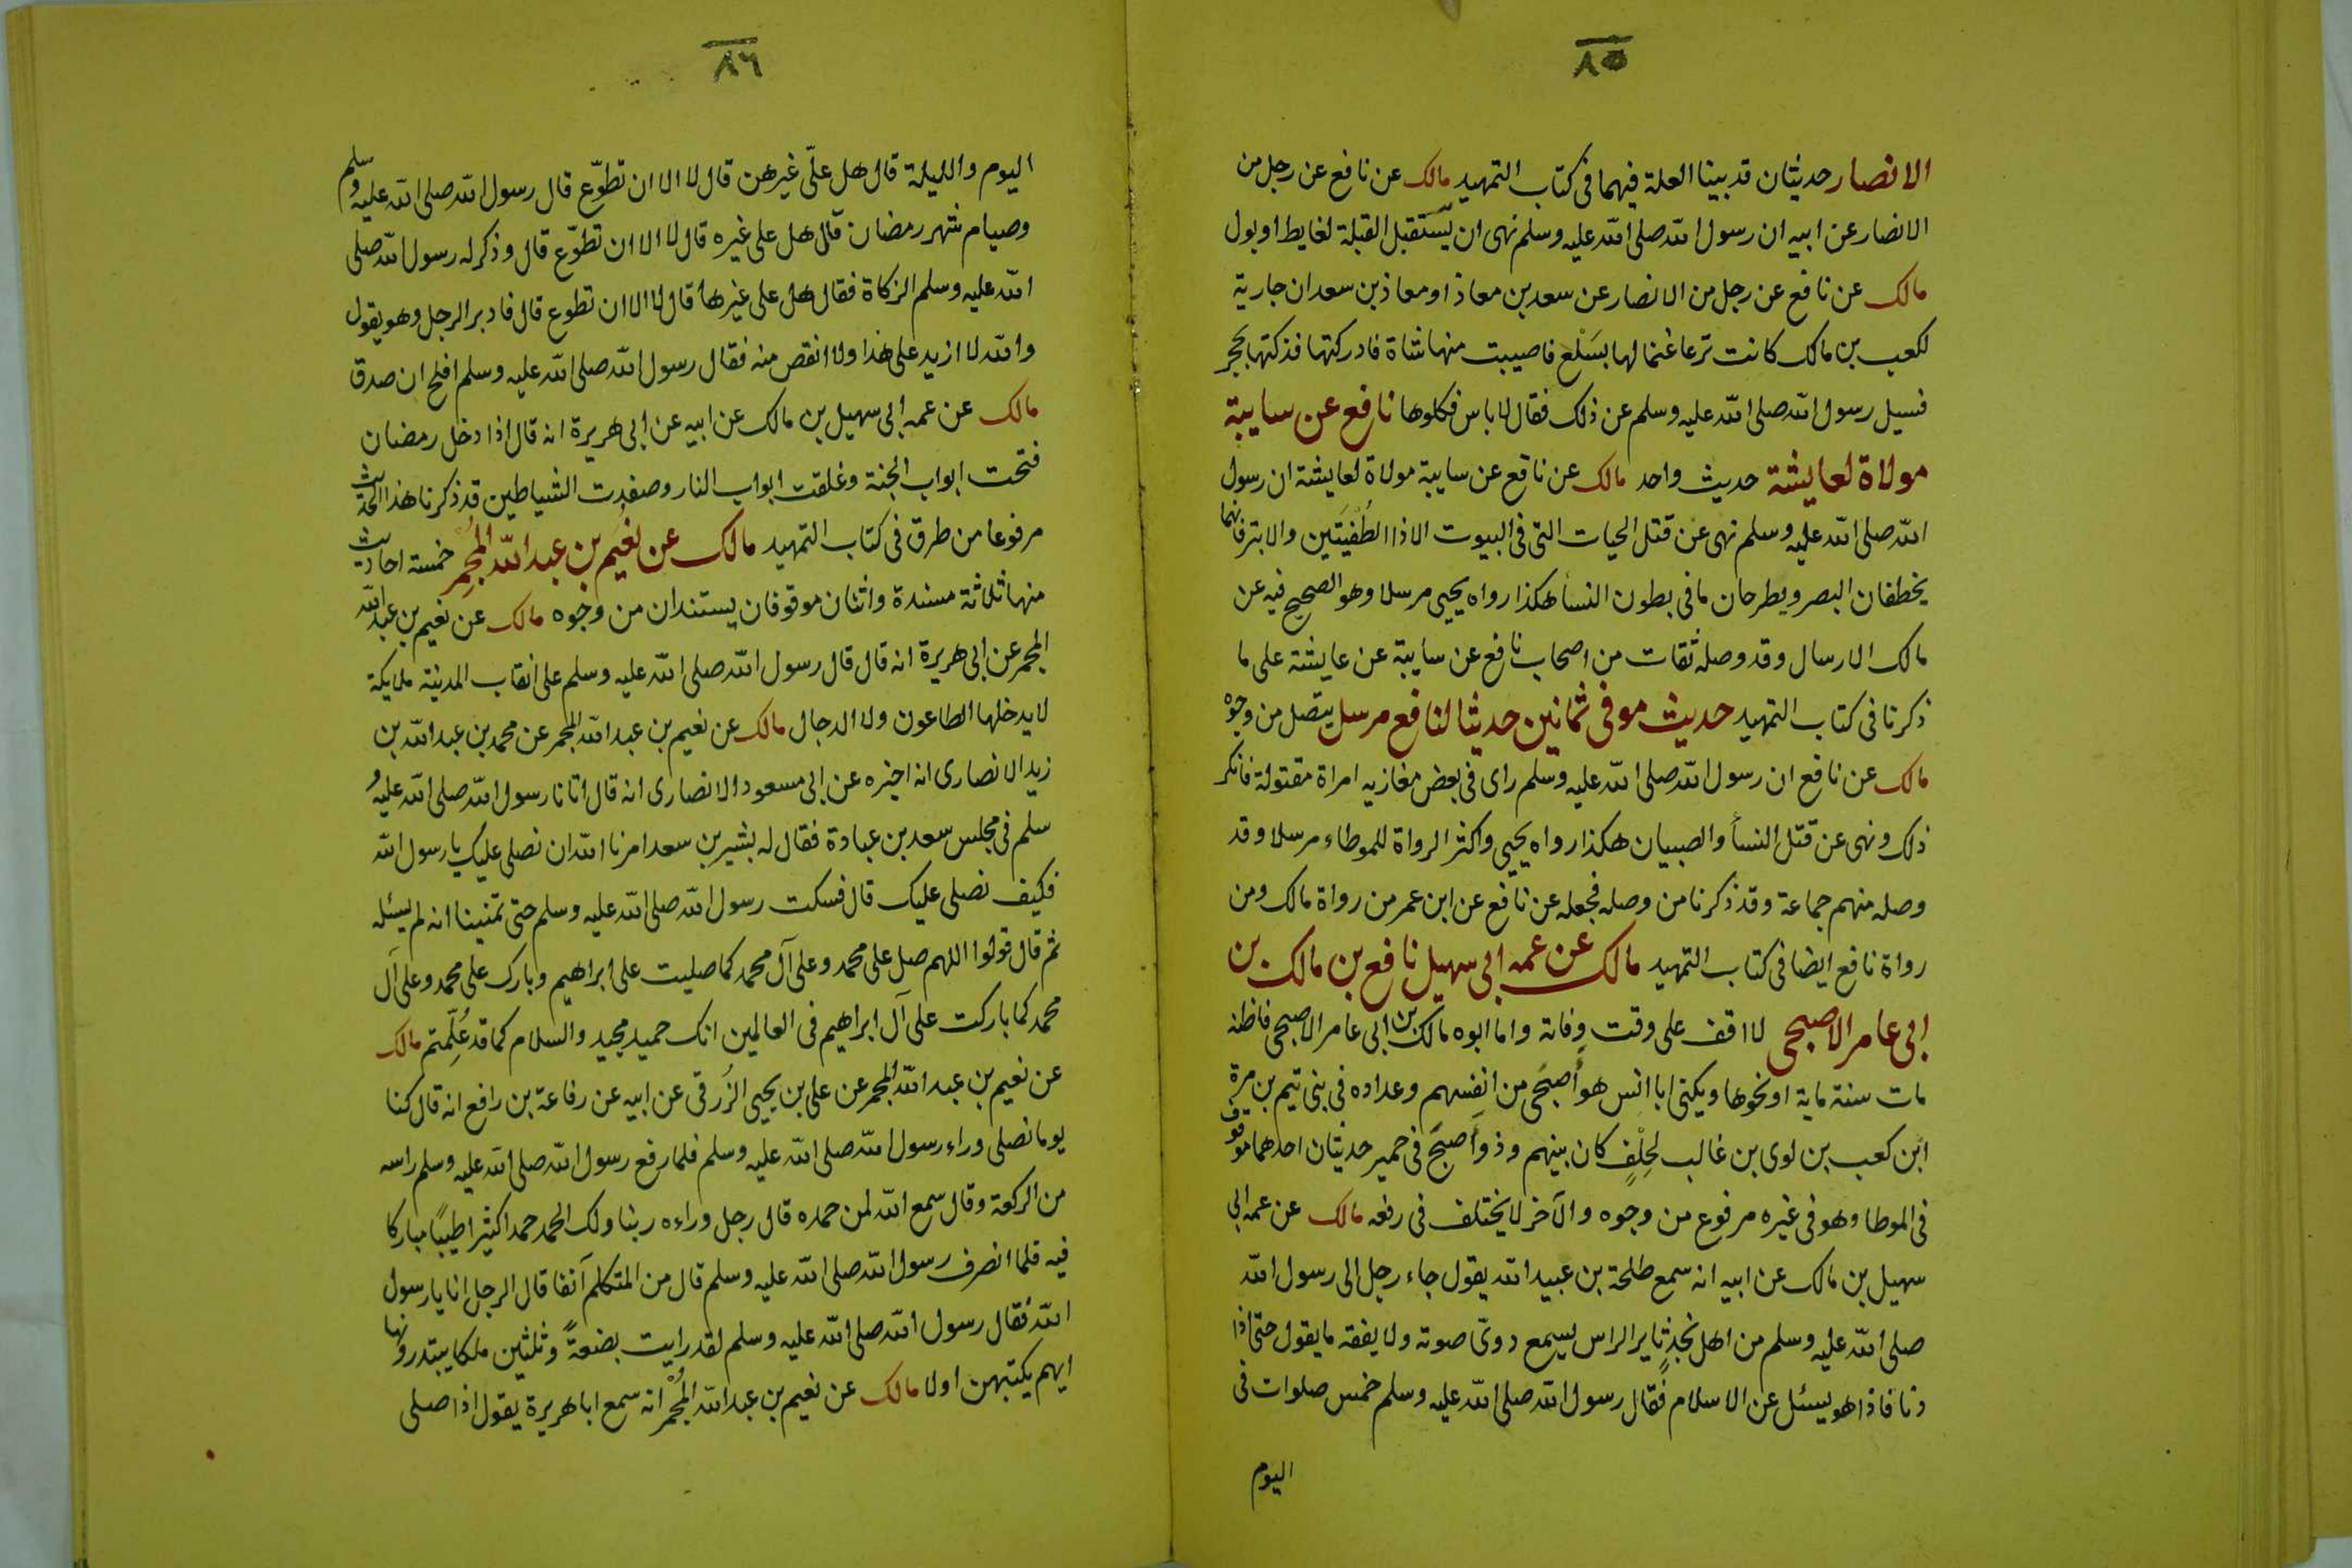 ٨٥
الانصار حديثان قد بينا العلة فيهما فى كتاب التمهيد مالك عن نافع عن رجل من
الانصار عن ابيه ان رسول الله صلى الله عليه وسلم نهى ان يستقبل القبلة لغايط او بول
مالك عن نافع عن رجل من الانصار عن سعد بن معاذ او معاذ بن سعد ان جارية
لكعب بن مالك كانت ترعا غنما لها بسَلْع فاصيبت منها شاة فادركتها فذكتها بحجر
فسيل رسول الله صلى الله عليه وسلم عن ذلك فقال لا باس فكلوها نافع عن سايبة
مولاة لعايشة حديث واحد مالك عن نافع عن سايبة مولاة لعايشة ان رسول
الله صلى الله عليه وسلم نهى عن قتل الحيات التى فى البيوت الا ذا الطُفْيَتَين والابتر فانهما
يخطفان البصر ويطرحان ما فى بطون النسأ هكذا رواه يحيى مرسلا وهو الصحيح فيه عن
مالك الارسال وقد وصله ثقات من اصحاب نافع عن سايبة عن عايشة على ما
ذكرنا فى كتاب التمهيد حديث موفى ثمانين حديثا لنافع مرسل يتصل من وجوه
مالك عن نافع ان رسول الله صلى الله عليه وسلم راى فى بعض مغازيه امراة مقتولة فانكر
ذلك ونهى عن قتل النسأ والصبيان هكذا رواه يحيى واكثر الرواة للموطاء مرسلا وقد
وصله منهم جماعة وقد ذكرنا من وصله فجعله عن نافع عن ابن عمر من رواة مالك ومن
رواة نافع ايضا فى كتاب التمهيد مالك عن عمه ابى سهيل نافع بن مالك بن
ابى عامر الاصبحى لا اقف على وقت وفاته واما ابوه مالك بن ابى عامر الاصبحى فاظنه
مات سنة ماية او نحوها ويكنى ابا انس هو أصبَحى من انفسهم وعداده فى بنى تيم بن مرة
ابن كعب بن لوى بن غالب لحِلْفٍ كان بينهم وذو أصبَح فى حمير حديثان احدهما موقوف
فى الموطا وهو فى غيره مرفوع من وجوه والآخر لا يختلف فى رفعه مالك عن عمه ابى
سهيل بن مالك عن ابيه انه سمع طلحة بن عبيد الله يقول جاء رجل الى رسول الله
صلى الله عليه وسلم من اهل نجدٍ ثاير الراس يسمع دوىّ صوته ولا يفقه ما يقول حتى اذا
دنا فاذا هو يسئل عن الاسلام فقال رسول الله صلى الله عليه وسلم خمس صلوات فى
اليوم
٨٦
اليوم والليلة قال هل علىّ غيرهن قال لا الا ان تطوّع قال رسول الله صلى الله عليه وسلم
وصيام شهر رمضان قال هل على غيره قال لا الا ان تطوّع قال وذكر له رسول الله صلى
الله عليه وسلم الزكاة فقال هل على غيرها قال لا الا ان تطوع قال فادبر الرجل وهو يقول
والله لا ازيد على هذا ولا انقص منه فقال رسول الله صلى الله عليه وسلم افلح ان صدق
مالك عن عمه ابى سهيل بن مالك عن ابيه عن ابى هريرة انه قال اذا دخل رمضان
فتحت ابواب الجنة وغلقت ابواب النار وصفدت الشياطين قد ذكرنا هذا الحديث
مرفوعا من طرق فى كتاب التمهيد مالك عن نعيم بن عبد الله المُجْمِر خمسة احاديث
منها ثلاثة مسندة واثنان موقوفان يستندان من وجوه مالك عن نعيم بن عبد الله
المجمر عن ابى هريرة انه قال قال رسول الله صلى الله عليه وسلم على انقاب المدينة ملايكة
لا يدخلها الطاعون ولا الدجال مالك عن نعيم بن عبد الله المجمر عن محمد بن عبد الله بن
زيد الانصارى انه اخبره عن ابى مسعود الانصارى انه قال اتانا رسول الله صلى الله عليه و
سلم فى مجلس سعد بن عبادة فقال له بشير بن سعد امرنا الله ان نصلى عليك يا رسول الله
فكيف نصلى عليك قال فسكت رسول الله صلى الله عليه وسلم حتى تمنينا انه لم يسئله
ثم قال قولوا اللهم صل على محمد وعلى آل محمد كما صليت على ابراهيم وبارك على محمد وعلى آل
محمد كما باركت على آل ابراهيم فى العالمين انك حميد مجيد والسلام كما قد عُلِّمتم مالك
عن نعيم بن عبد الله المجمر عن على بن يحيى الزُرقى عن ابيه عن رفاعة بن رافع انه قال كنا
يوما نصلى وراء رسول الله صلى الله عليه وسلم فلما رفع رسول الله صلى الله عليه وسلم راسه
من الركعة وقال سمع الله لمن حمده قال رجل وراءه ربنا ولك الحمد حمدا كثيرا طيبًا مباركا
فيه فلما انصرف رسول الله صلى الله عليه وسلم قال من المتكلم آنفا قال الرجل انا يا رسول
الله فقال رسول الله صلى الله عليه وسلم لقد رايت بضعةً وثلثين ملكا يبتدرونها
ايهم يكتبهن اولا مالك عن نعيم بن عبد الله المُجْمر انه سمع ابا هريرة يقول اذا صلى